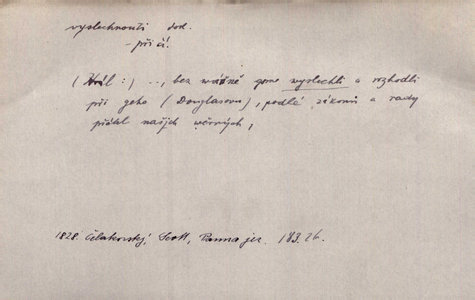 vyslechnouti dok.
- při čí.
(Král:) .., bez wášně gsme wyslechli a rozhodli
při geho (Douglasowu), podlé zákonů a rady
přátel našjch wěrných;
1828. Čelakovský, Scott, Panna jez. 183.26.